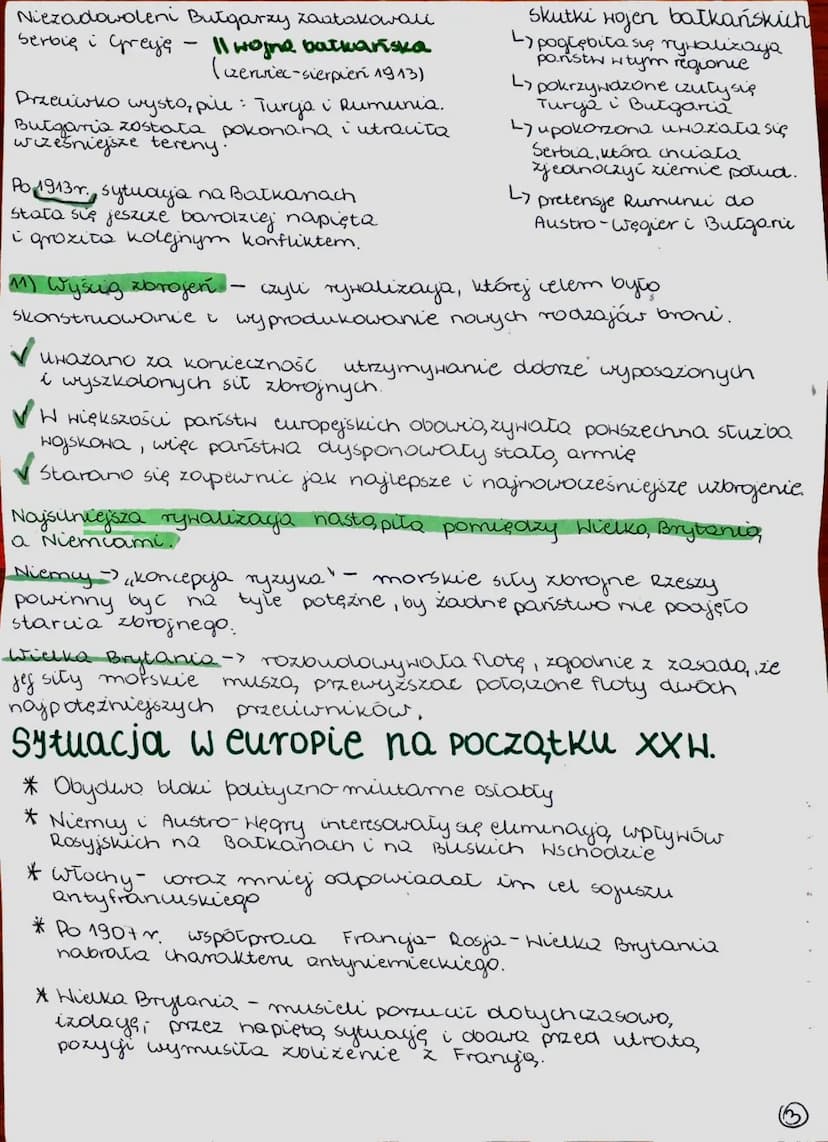 Niezadowoleni Bułgarzy zaatakowali
Serbię i Grecję – II wojna bałkańska
(czerwiec-sierpień 1913)
Przeciwko wystąpiły: Turcja i Rumunia.
Bułgaria została pokonana i utraciła
wcześniejsze tereny.
Po 1913r. sytuacja na Bałkanach
stała się jeszcze bardziej napięta
i groziła kolejnym konfliktem.
Skutki wojen bałkańskich
↳ pogłębiła się rywalizacja
państw w tym regionie
↳ pokrzywdzone czuły się
Turcja i Bułgaria
↳ upokorzona uważała się
Serbia, która chciała
zjednoczyć ziemie połud.
↳ pretensje Rumunii do
Austro-Węgier i Bułgarii
11) Wyścig zbrojeń – czyli rywalizacja, której celem było
skonstruowanie i wyprodukowanie nowych rodzajów broni.
✓ uważano za konieczność utrzymywanie dobrze wyposażonych
i wyszkolonych sił zbrojnych.
✓ W większości państw europejskich obowiązywała powszechna służba
wojskowa, więc państwa dysponowały stałą armię
✓ Starano się zapewnić jak najlepsze i najnowocześniejsze uzbrojenie.
Najsilniejsza rywalizacja nastąpiła pomiędzy Wielką Brytanią
a Niemcami.
Niemcy → „koncepcja ryzyka" – morskie siły zbrojne Rzeszy
powinny być na tyle potężne, by żadne państwo nie podjęło
starcia zbrojnego.
Wielka Brytania → rozbudowywała flotę, zgodnie z zasadą, że
jej siły morskie muszą przewyższać połączone floty dwóch
najpotężniejszych przeciwników.
Sytuacja w Europie na początku XX w.
* Obydwa bloki polityczno-militarne osłabły
* Niemcy i Austro-Węgry interesowały się eliminacją wpływów
Rosyjskich na Bałkanach i na Bliskich Wschodzie
* Włochy – coraz mniej odpowiadał im cel sojuszu
antyfrancuskiego
* Po 1907r. współpraca Francja-Rosja-Wielka Brytania
nabrała charakteru antyniemieckiego.
* Wielka Brytania – musieli porzucić dotychczasową
izolację, przez napiętą sytuację i obawa przed utratą
pozycji wymusiła zbliżenie z Francją.
3